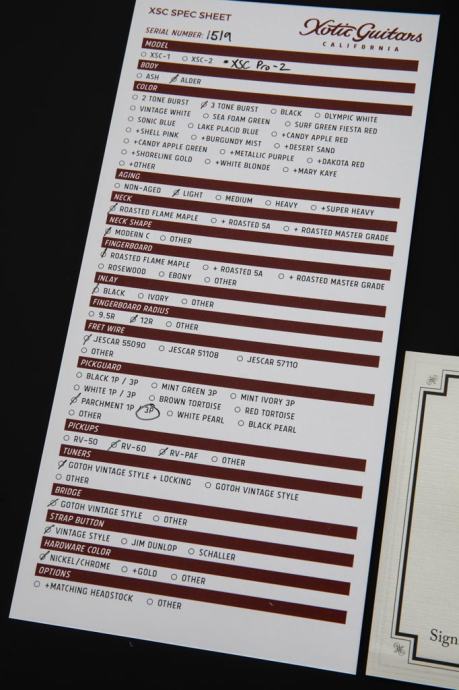 XSC SPEC SHEET
Xotic Guitars
CALIFORNIA
SERIAL NUMBER: 1519
MODEL
○ XSC-1 ○ XSC-2 • XSC Pro-2
BODY
○ ASH ∅ ALDER
COLOR
○ 2 TONE BURST ∅ 3 TONE BURST ○ BLACK ○ OLYMPIC WHITE
○ VINTAGE WHITE ○ SEA FOAM GREEN ○ SURF GREEN FIESTA RED
○ SONIC BLUE ○ LAKE PLACID BLUE ○ +CANDY APPLE RED
○ +SHELL PINK ○ +BURGUNDY MIST ○ +DESERT SAND
○ +CANDY APPLE GREEN ○ +METALLIC PURPLE ○ +DAKOTA RED
○ +SHORELINE GOLD ○ +WHITE BLONDE ○ +MARY KAYE
○ +OTHER
AGING
○ NON-AGED ∅ LIGHT ○ MEDIUM ○ HEAVY ○ +SUPER HEAVY
NECK
∅ ROASTED FLAME MAPLE ○ + ROASTED 5A ○ + ROASTED MASTER GRADE
NECK SHAPE
∅ MODERN C ○ OTHER
FINGERBOARD
∅ ROASTED FLAME MAPLE ○ + ROASTED 5A ○ + ROASTED MASTER GRADE
○ ROSEWOOD ○ EBONY ○ OTHER
INLAY
∅ BLACK ○ IVORY ○ OTHER
FINGERBOARD RADIUS
○ 9.5R ∅ 12R ○ OTHER
FRET WIRE
∅ JESCAR 55090 ○ JESCAR 51108 ○ JESCAR 57110
○ OTHER
PICKGUARD
○ BLACK 1P / 3P ○ MINT GREEN 3P ○ MINT IVORY 3P
○ WHITE 1P / 3P ○ BROWN TORTOISE ○ RED TORTOISE
∅ PARCHMENT 1P 3P ○ WHITE PEARL ○ BLACK PEARL
○ OTHER
PICKUPS
○ RV-50 ∅ RV-60 ∅ RV-PAF ○ OTHER
TUNERS
∅ GOTOH VINTAGE STYLE + LOCKING ○ GOTOH VINTAGE STYLE
○ OTHER
BRIDGE
∅ GOTOH VINTAGE STYLE ○ OTHER
STRAP BUTTON
∅ VINTAGE STYLE ○ JIM DUNLOP ○ SCHALLER
HARDWARE COLOR
∅ NICKEL/CHROME ○ +GOLD ○ OTHER
OPTIONS
○ +MATCHING HEADSTOCK ○ OTHER
Sign